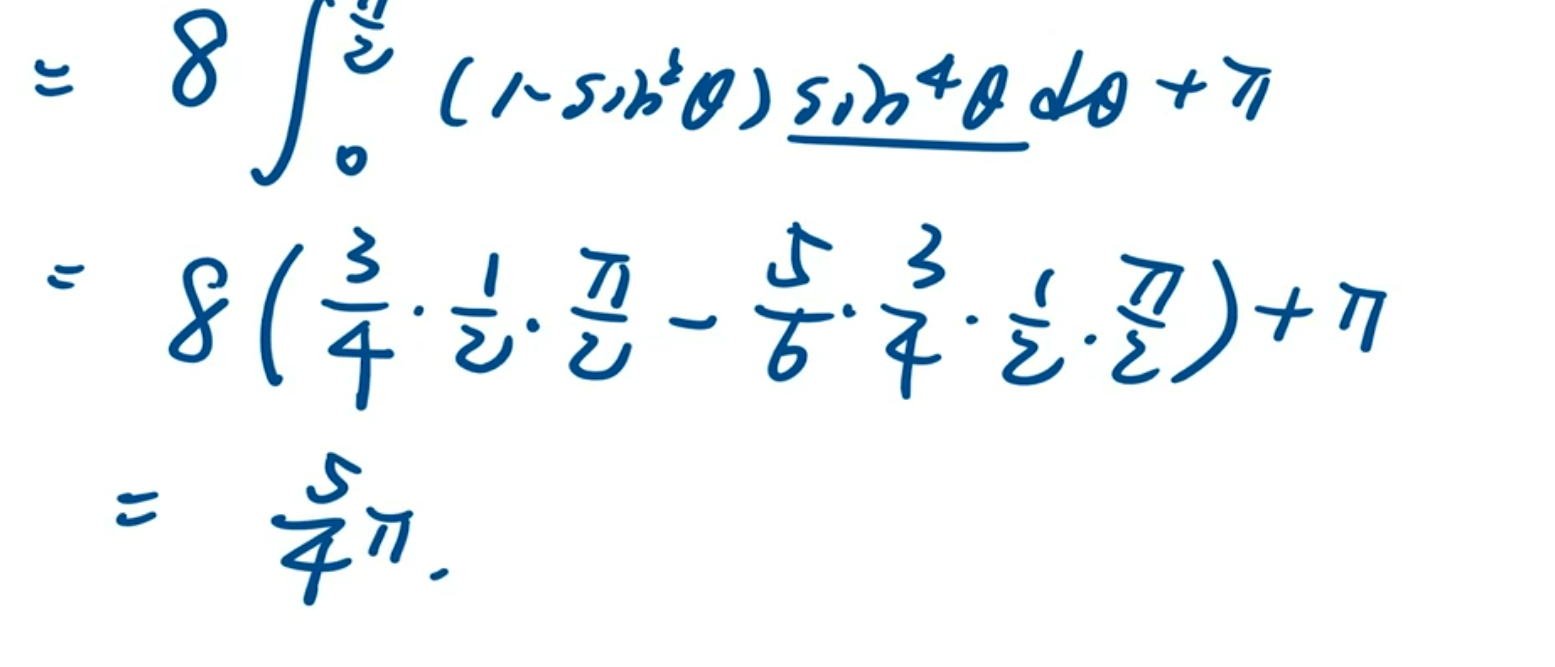 = 8 ∫₀^{π/2} (1-sin²θ) sin⁴θ dθ + π
= 8 ( 3/4 · 1/2 · π/2 - 5/6 · 3/4 · 1/2 · π/2 ) + π
= 5/4 π.